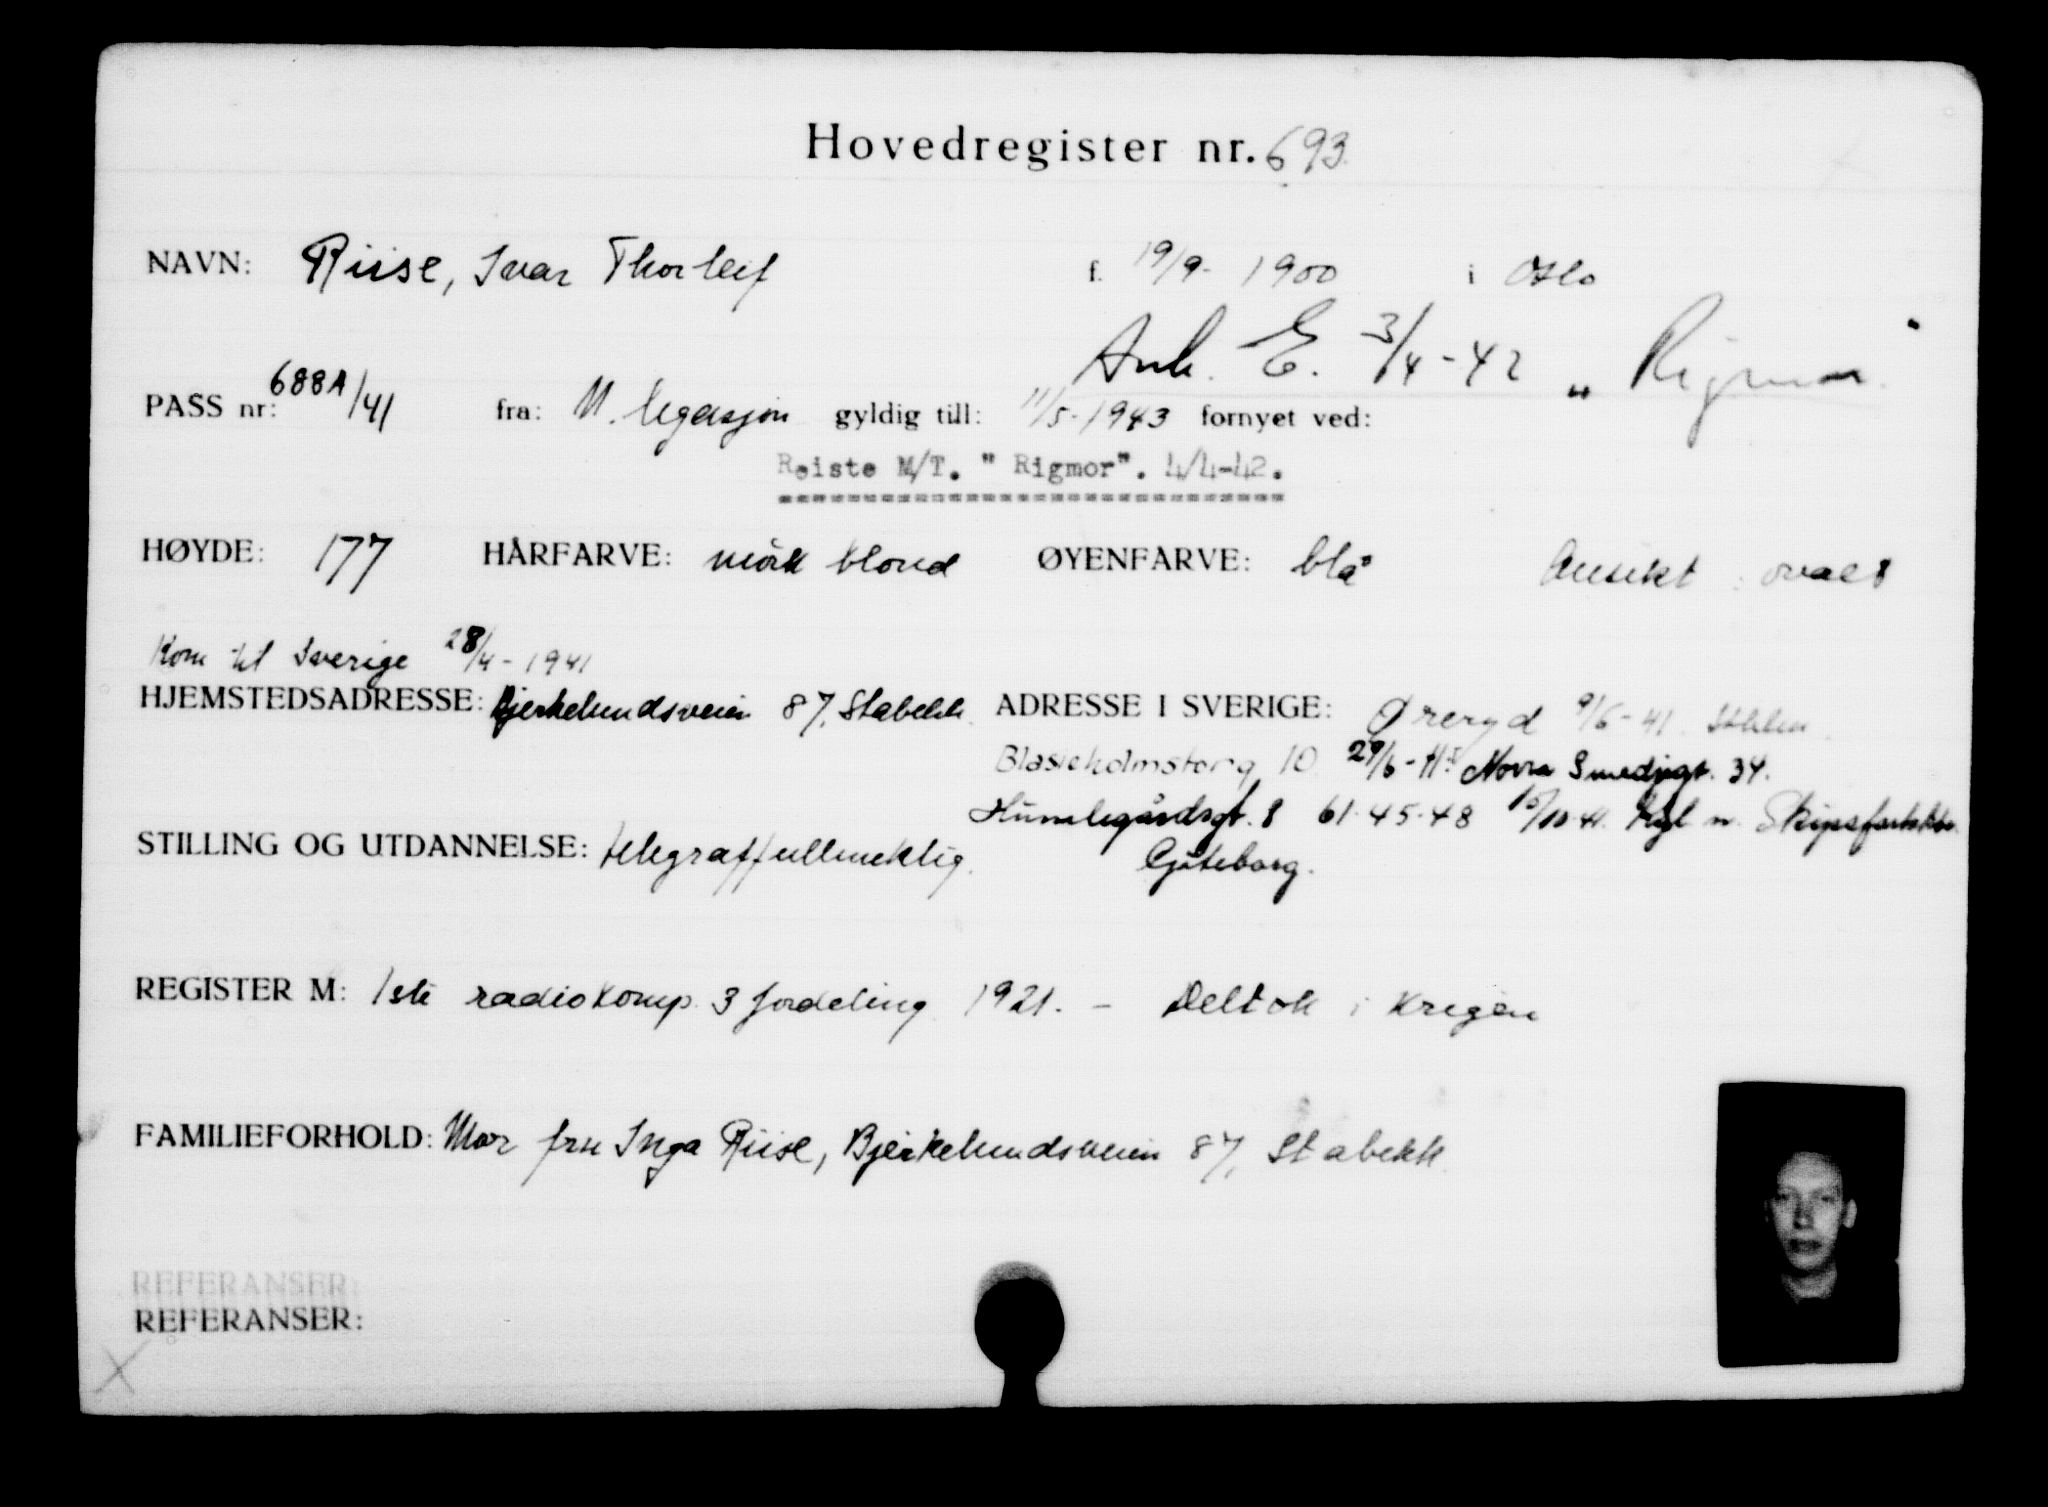 Hovedregister nr. 693
NAVN: Riise, Ivar Thorleif f. 19/9- 1900 i Oslo
Ank. E. 3/4-42 „Rigmor"
PASS nr: 688A/41 fra: N. legasjon gyldig till: 11/5-1943 fornyet ved:
Reiste M/T. " Rigmor". 4/4-42.
HØYDE: 177 HÅRFARVE: mörk blond ØYENFARVE: blå Ansikt: ovalt
Kom til Sverige 28/4-1941
HJEMSTEDSADRESSE: Bjerkelundsveien 87, Stabekk ADRESSE I SVERIGE: Øreryd 9/6-41. Sthlm
Blasieholmstorg 10 29/6-41: Norra Smedjegt. 34.
Humlegårdsgt. 8 61.45.48 15/10-41. Kgl n. Skipsfartsktr.
STILLING OG UTDANNELSE: telegraffullmektig. Göteborg.
REGISTER M: 1ste radiokomp. 3 fordeling 1921. - Deltok i krigen
FAMILIEFORHOLD: Mor fru Inga Riise, Bjerkelundsveien 87, Stabekk.
REFERANSER:
REFERANSER: